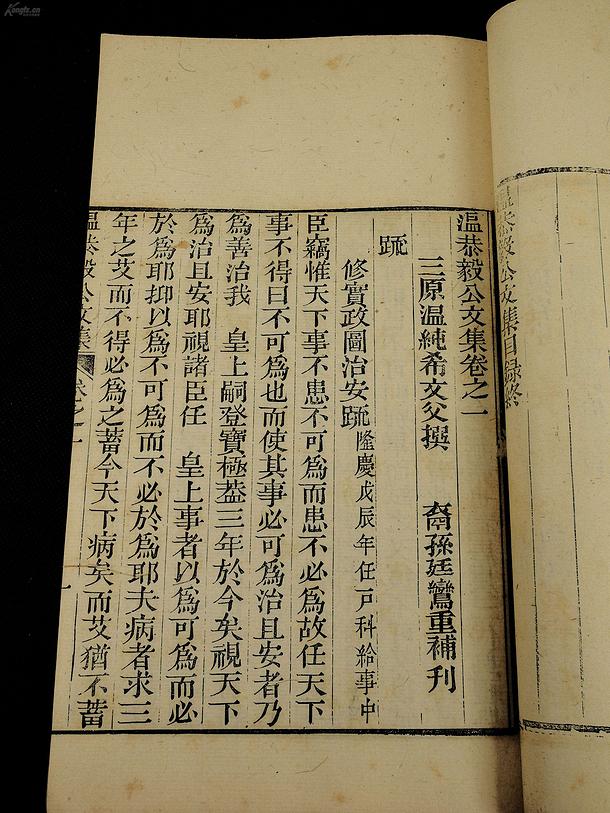 Kongfz.cn
温恭毅公文集目録終
温恭毅公文集卷之一
三原温純希文父撰　裔孫廷鸞重補刊
疏
修實政圖治安疏隆慶戊辰年任戸科給事中
臣竊惟天下事不患不可為而患不必為故任天下
事不得曰不可為也而使其事必可為治且安者乃
為善治我　皇上嗣登寶極葢三年於今矣視天下
為治且安耶視諸臣任　皇上事者以為可為而必
於為耶抑以為不可為而不必於為耶夫病者求三
年之艾而不得必為之蓄今天下病矣而艾猶不蓄
温恭毅公文集　卷之一　一